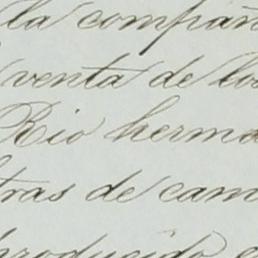 la compañ
venta de los
Rio herma
tras de cam
producido e